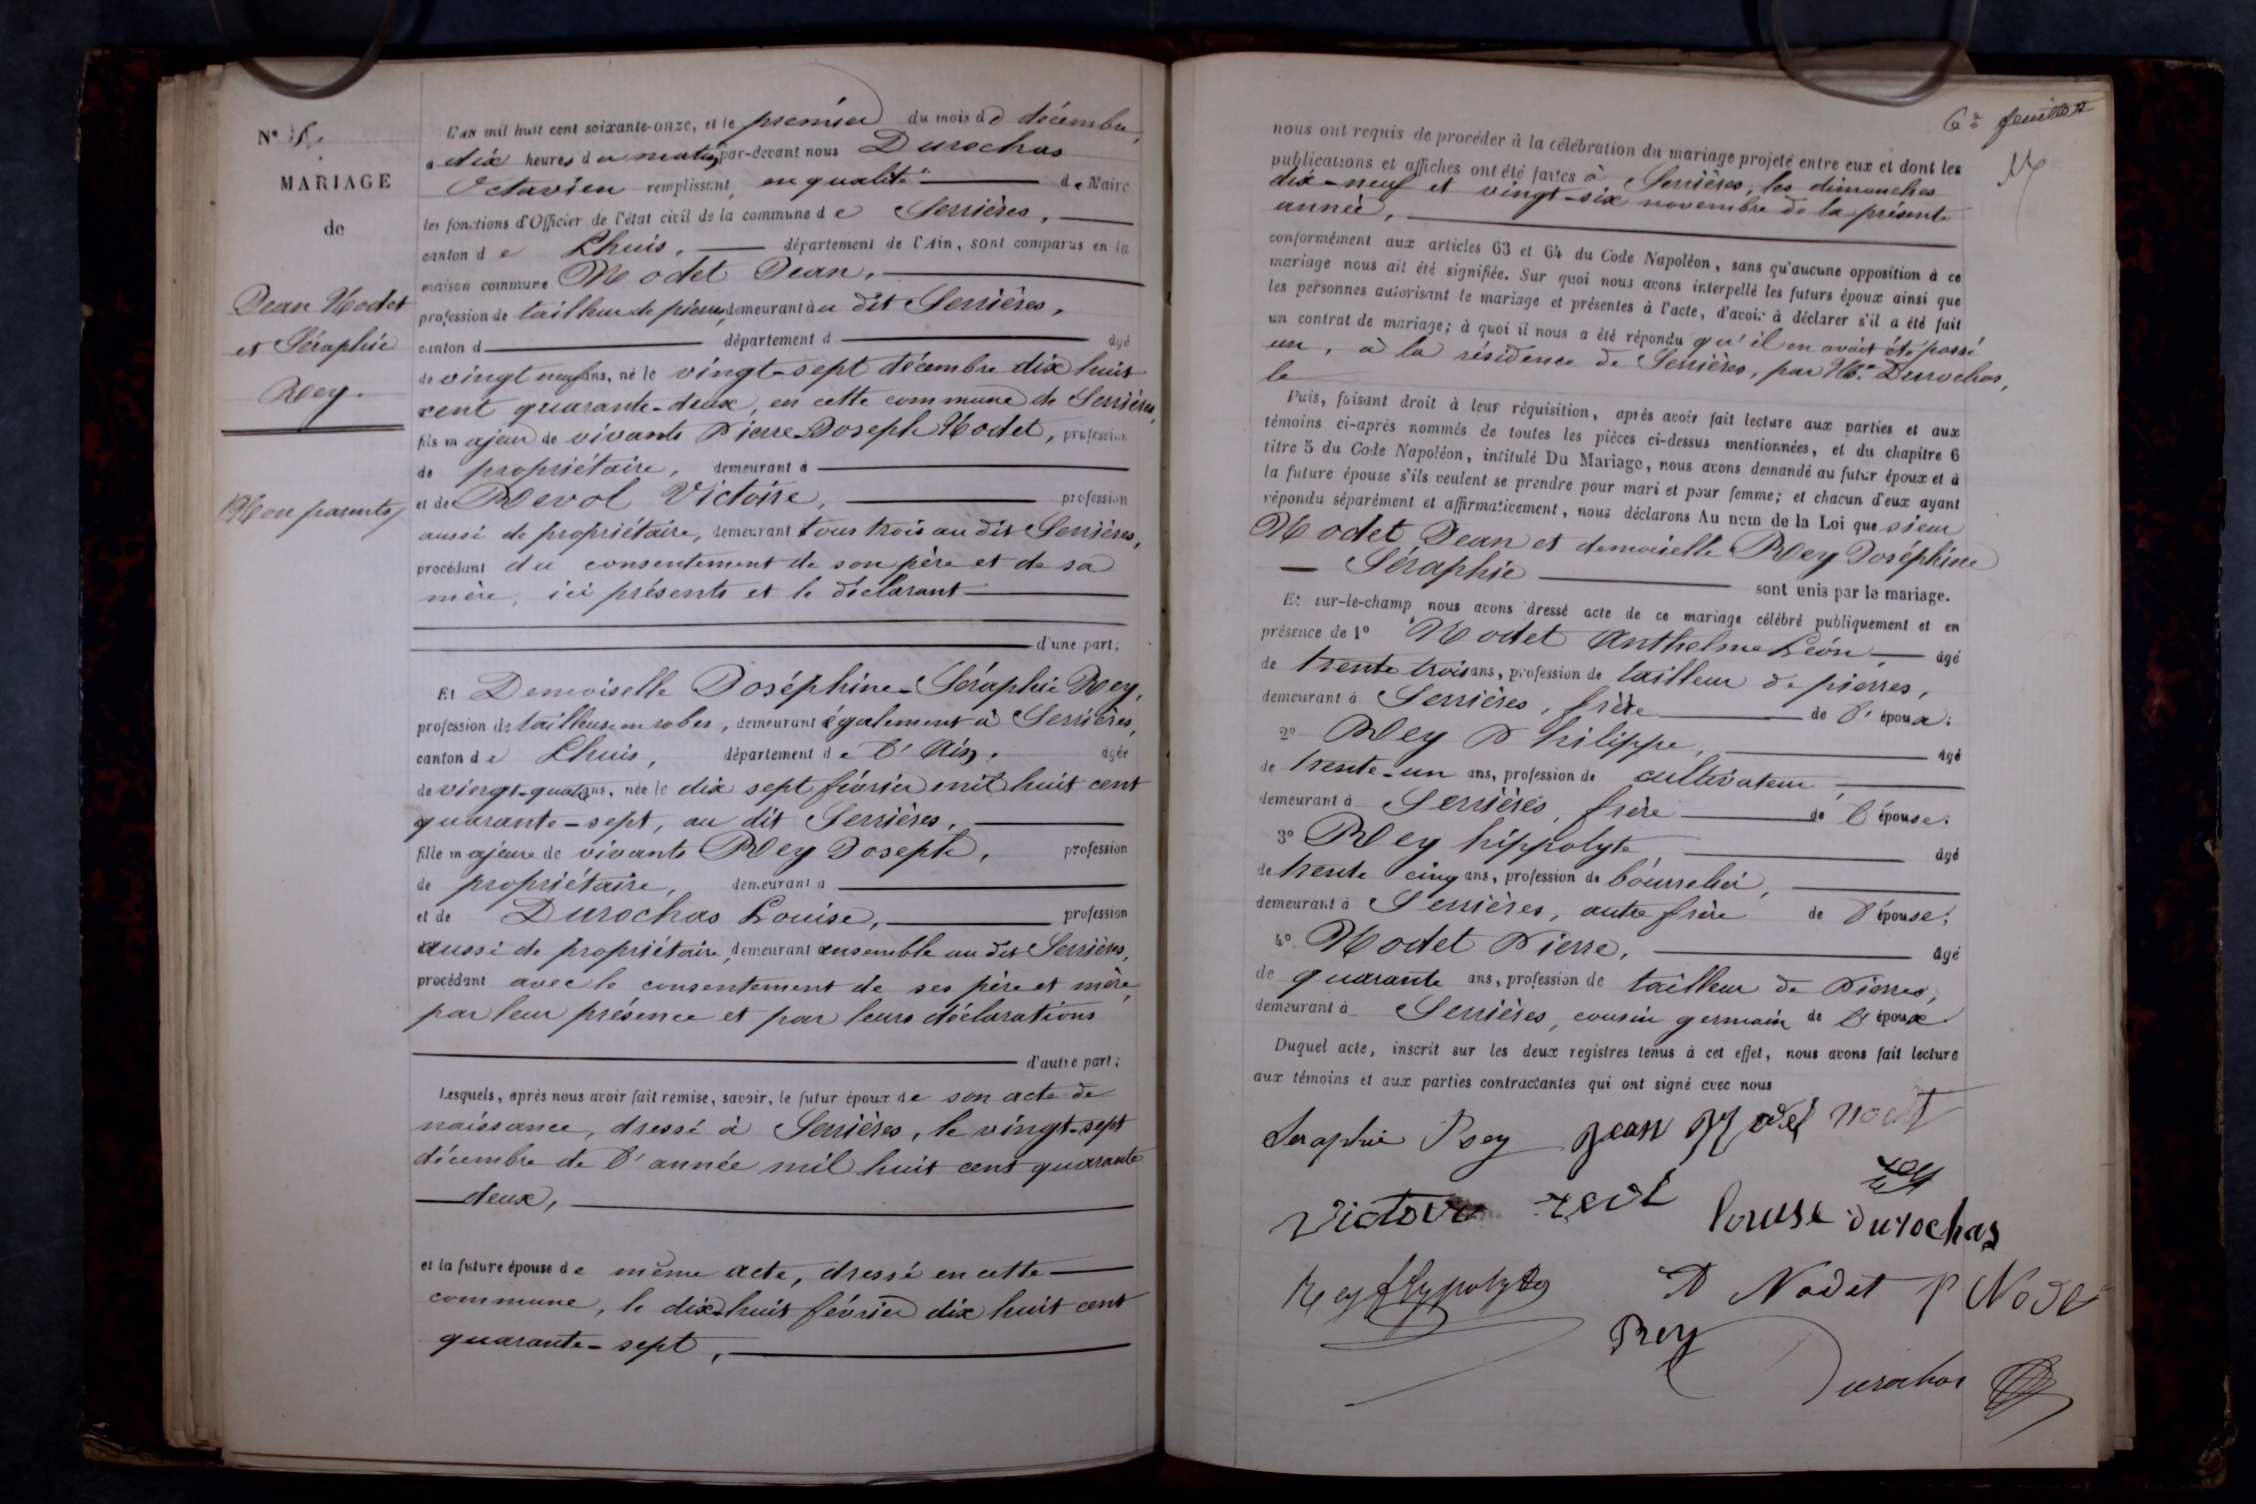 N°
MARIAGE
de
Jean Nodet
et Séraphie
Rey.
Non parents,
L'an mil huit cent soixante-onze, et le premier du mois de décembre,
à dix heures du matin, par-devant nous Durochas
Octavien remplissant, en qualité de Maire
les fonctions d'Officier de l'état civil de la commune de Serrières,
canton de Lhuis, département de l'Ain, sont comparus en la
maison commune Nodet Jean,
profession de tailleur de pierres, demeurant au dit Serrières,
canton d département d âgé
de vingt neuf ans, né le vingt-sept décembre dix huit
cent quarante-deux, en cette commune de Serrières,
fils majeur de vivants Pierre Joseph Nodet, profession
de propriétaire, demeurant à
et de Revol Victoire, profession
aussi de propriétaire, demeurant tous trois au dit Serrières,
procédant du consentement de son père et de sa
mère, ici présents et le déclarant
d'une part;
Et Demoiselle Joséphine-Séraphie Rey,
profession de tailleuse en robes, demeurant également à Serrières,
canton de Lhuis, département de l'Ain, âgée
de vingt-quatre ans, née le dix sept février mil huit cent
quarante-sept, au dit Serrières,
fille majeure de vivants Rey Joseph, profession
de propriétaire, demeurant à
et de Durochas Louise, profession
aussi de propriétaire, demeurant ensemble au dit Serrières,
procédant avec le consentement de ses père et mère,
par leur présence et par leurs déclarations
d'autre part;
Lesquels, après nous avoir fait remise, savoir, le futur époux de son acte de
naissance, dressé à Serrières, le vingt-sept
décembre de l'année mil huit cent quarante
deux,
et la future épouse de même acte, dressé en cette
commune, le dix-huit février dix huit cent
quarante-sept,
6e feuillet
nous ont requis de procéder à la célébration du mariage projeté entre eux et dont les
publications et affiches ont été faites à Serrières, les dimanches
dix-neuf et vingt-six novembre de la présente
année,
conformément aux articles 63 et 64 du Code Napoléon, sans qu'aucune opposition à ce
mariage nous ait été signifiée. Sur quoi nous avons interpellé les futurs époux ainsi que
les personnes autorisant le mariage et présentes à l'acte, d'avoir à déclarer s'il a été fait
un contrat de mariage; à quoi il nous a été répondu qu'il en avait été passé
un, à la résidence de Serrières, par Me Durochas,
le
Puis, faisant droit à leur réquisition, après avoir fait lecture aux parties et aux
témoins ci-après nommés de toutes les pièces ci-dessus mentionnées, et du chapitre 6
titre 5 du Code Napoléon, intitulé Du Mariage, nous avons demandé au futur époux et à
la future épouse s'ils veulent se prendre pour mari et pour femme; et chacun d'eux ayant
répondu séparément et affirmativement, nous déclarons Au nom de la Loi que sieur
Nodet Jean et demoiselle Rey Joséphine
Séraphie sont unis par le mariage.
Et sur-le-champ nous avons dressé acte de ce mariage célébré publiquement et en
présence de 1° Nodet Anthelme Léon, âgé
de trente trois ans, profession de tailleur de pierres,
demeurant à Serrières, frère de l'époux;
2° Rey Philippe, âgé
de trente-un ans, profession de cultivateur,
demeurant à Serrières, frère de l'épouse;
3° Rey hippolyte âgé
de trente cinq ans, profession de bourrelier,
demeurant à Serrières, autre frère de l'épouse;
4° Nodet Pierre, âgé
de quarante ans, profession de tailleur de Pierres,
demeurant à Serrières, cousin germain de l'époux
Duquel acte, inscrit sur les deux registres tenus à cet effet, nous avons fait lecture
aux témoins et aux parties contractantes qui ont signé avec nous
Seraphie Rey Jean Nodet
Louise durochas
Rey Hypolyte Nodet P Node
Rey
Durochas